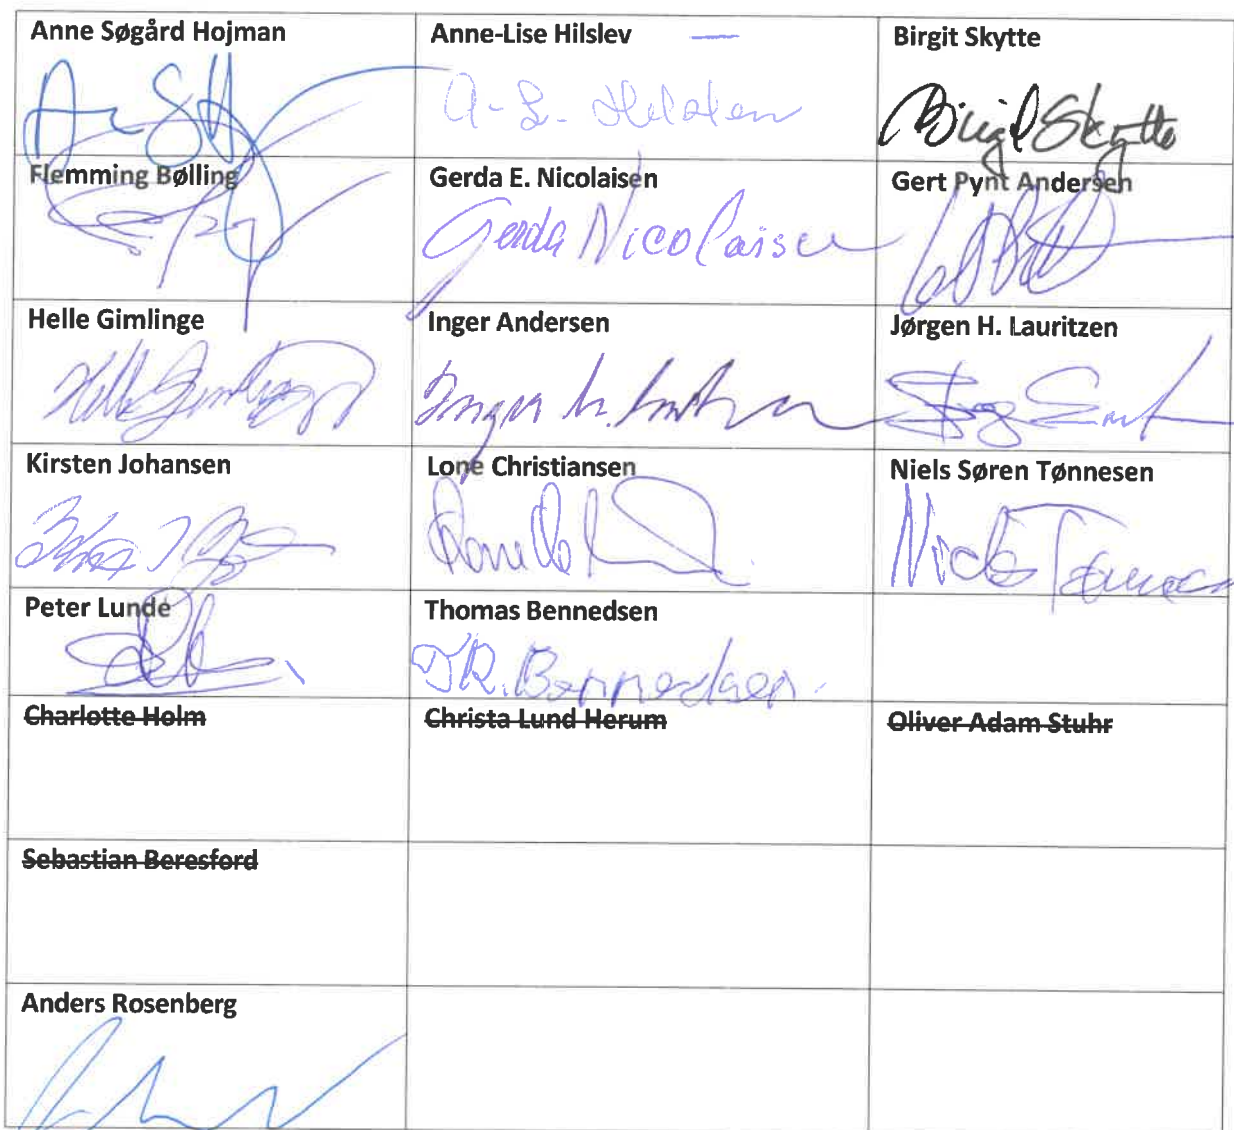 Anne Søgård Hojman
Anne-Lise Hilslev —
Birgit Skytte
A-L- Hilslev
Birgit Skytte
Flemming Bølling
Gerda E. Nicolaisen
Gert Pynt Andersen
Gerda Nicolaisen
Helle Gimlinge
Inger Andersen
Jørgen H. Lauritzen
Kirsten Johansen
Lone Christiansen
Niels Søren Tønnesen
Peter Lunde
Thomas Bennedsen
T.R. Bennedsen
Charlotte Holm
Christa Lund Herum
Oliver Adam Stuhr
Sebastian Beresford
Anders Rosenberg